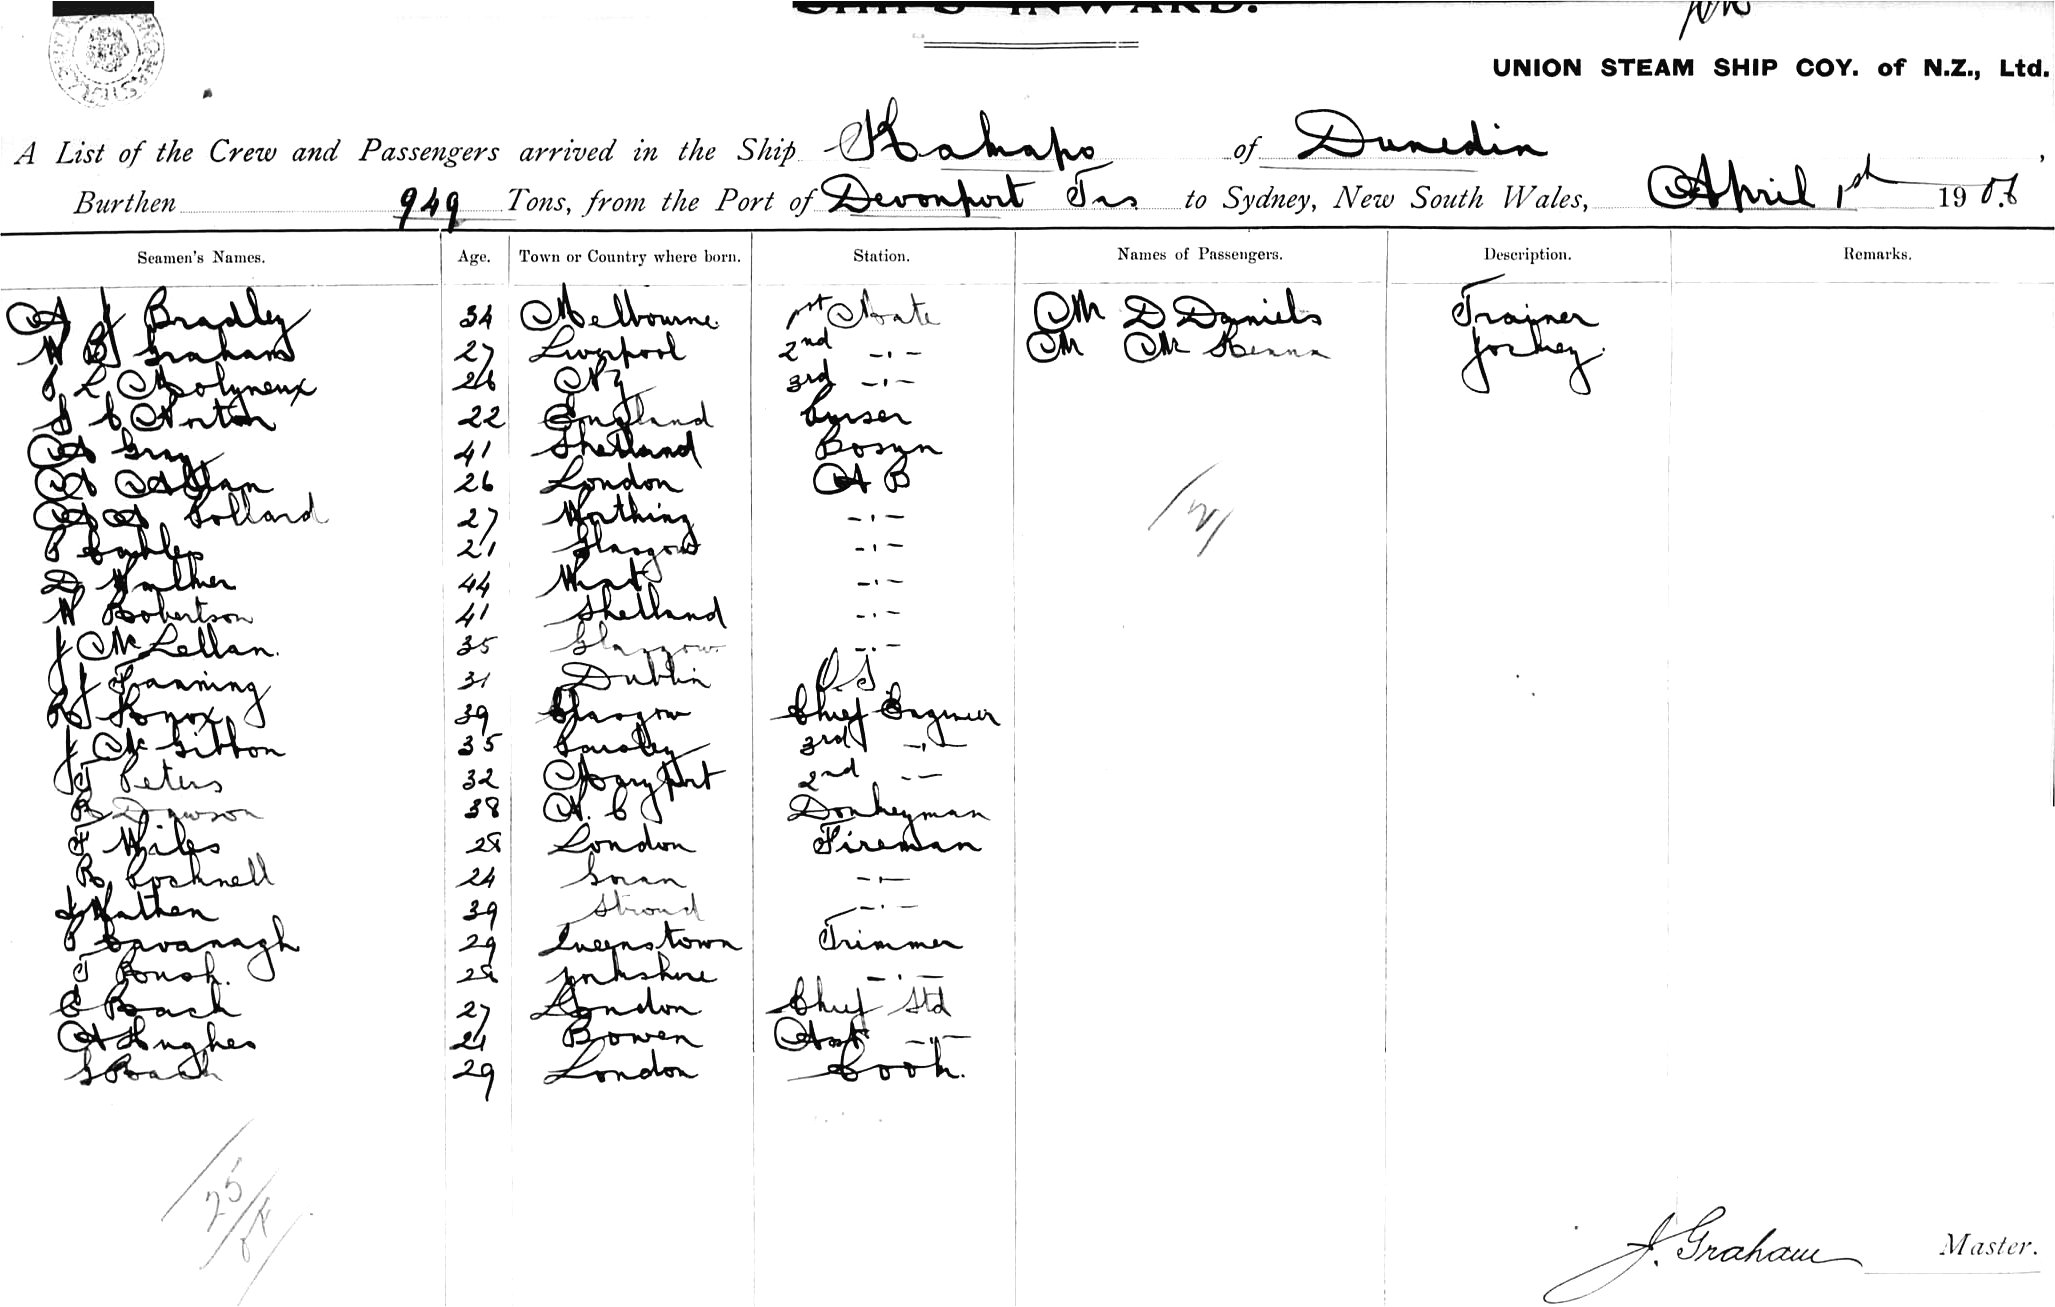 SHIPS INWARD.
UNION STEAM SHIP COY. of N.Z., Ltd.
A List of the Crew and Passengers arrived in the Ship Kakapo of Dunedin,
Burthen 949 Tons, from the Port of Devonport Tas. to Sydney, New South Wales, April 1st 1906
Seamen's Names. Age. Town or Country where born. Station. Names of Passengers. Description. Remarks.
A J Bradley 34 Melbourne. 1st Mate Mr D Daniels Trainer
W B Graham 27 Liverpool 2nd -.- Mr McKenna Jockey.
L Molyneux 26 NZ 3rd -.-
C Norton 22 England Purser
A Gray 41 Shetland Bosun
A Allan 26 London A B
A A Pollard 27 Worthing -.-
P 21 Glasgow -.-
D Walker 44 -.-
W Robertson 41 Shetland -.-
J McLellan. 35 Glasgow. -.-
J J Fanning 31 Dublin O.S
R Knox 39 Glasgow Chief Engineer
J McGibbon 35 Paisley 3rd -.-
T Peters 32 Maryport 2nd --
R Dawson 38 N. C Donkeyman
F Wiles 28 London Fireman
R Cocknell 24 -.-
Wathen 39 Stroud -.-
P Cavanagh 29 Queenstown Trimmer
T 28 Yorkshire -.-
C Bach 27 London Chief Std
A Hughes 21 Bowen Asst -.-
G Bach 29 London Cook.
2
25
J. Graham Master.